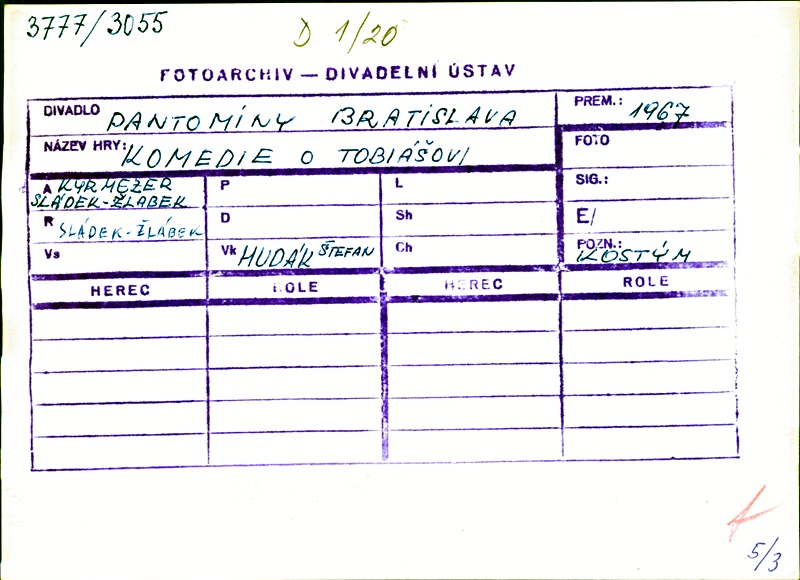 3777/3055
D 1/20
FOTOARCHIV — DIVADELNÍ ÚSTAV
DIVADLO PANTOMÍNY BRATISLAVA
PREM.: 1967
NÁZEV HRY: KOMEDIE O TOBIÁŠOVI
FOTO
A KYRMEZER
SLÁDEK-ŽLABEK
P
L
SIG.:
R SLÁDEK-ŽLÁBEK
D
Sh
E/
Vs
Vk HUDÁK ŠTEFAN
Ch
POZN.: KOSTÝM
HEREC ROLE HEREC ROLE
5/3